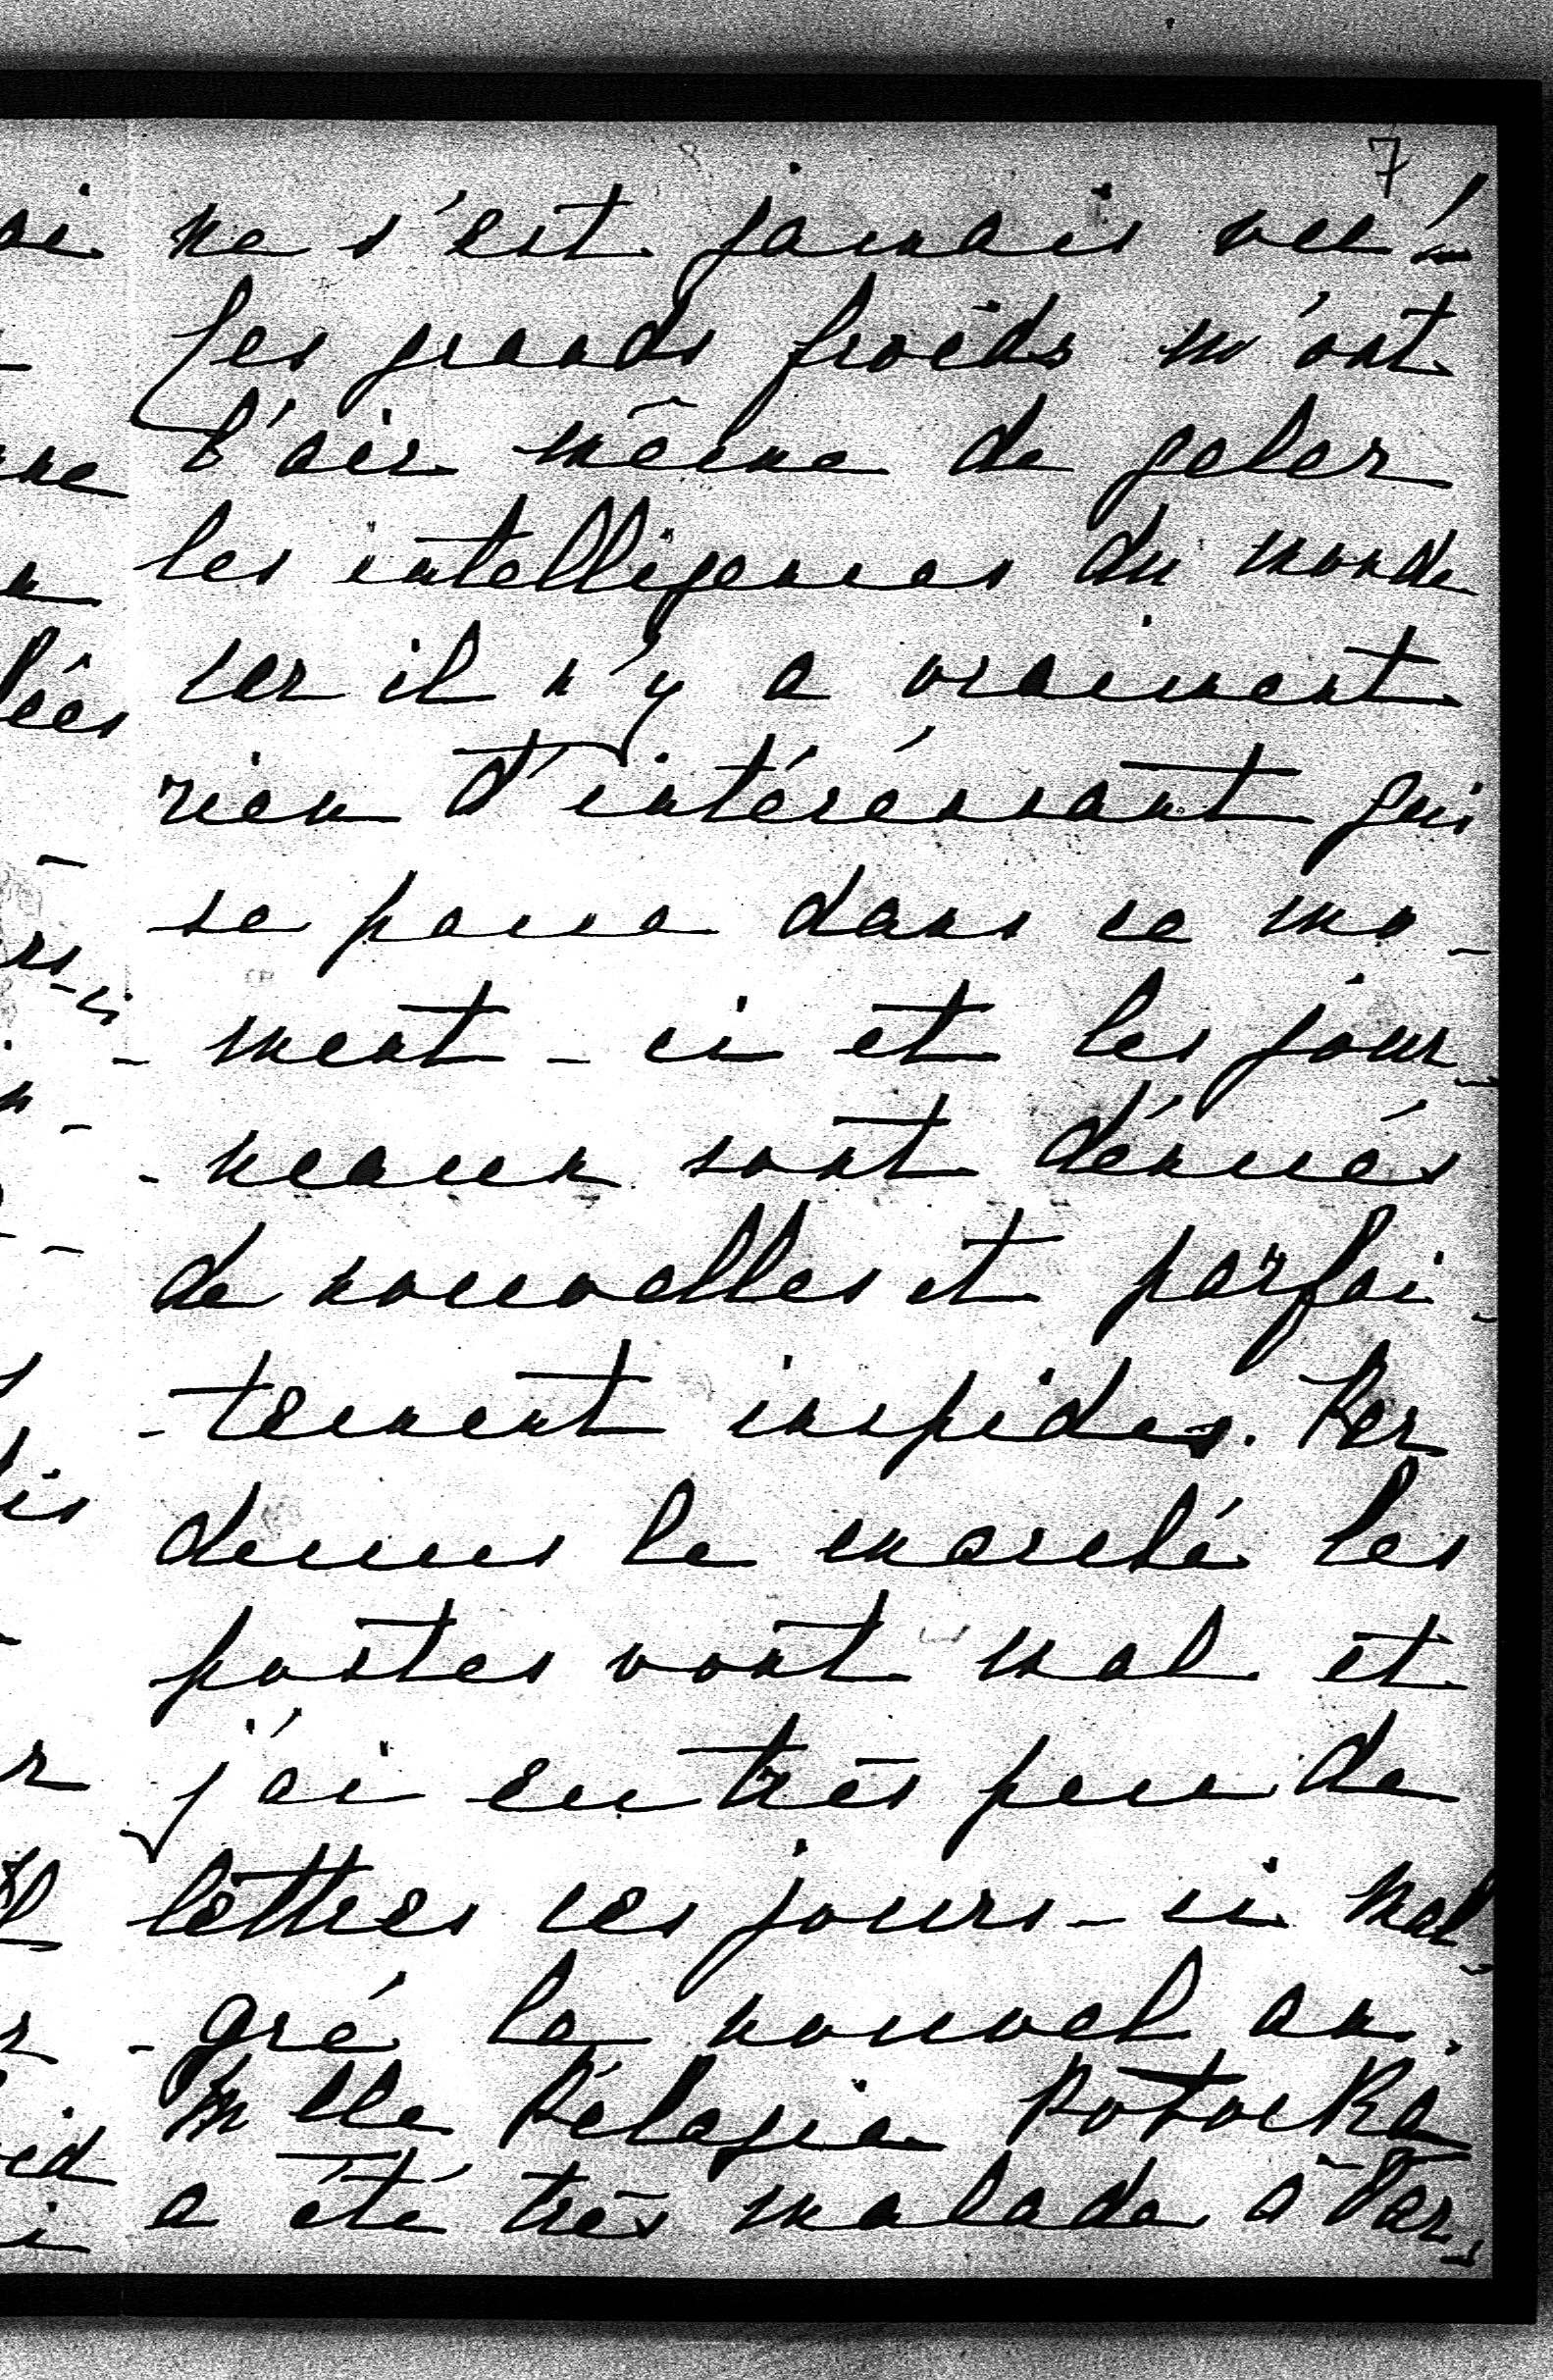 7
ne s'est jamais vu!
Les grands froids m'ont
l'air même de geler
les intelligences du monde
car il n'y a vraiment
rien d'intéréssant qui
se passe dans ce mo-
-ment-ci et les jour-
-neaux sont dénués
de nouvelles et parfai-
-tement insipides. Par
dessus le marché les
postes vont mal et
j'ai eu très peu de
lettres ces jours-ci mal-
-gré le nouvel an.
Mlle Pélagie Potocka
a été très malade à Var-